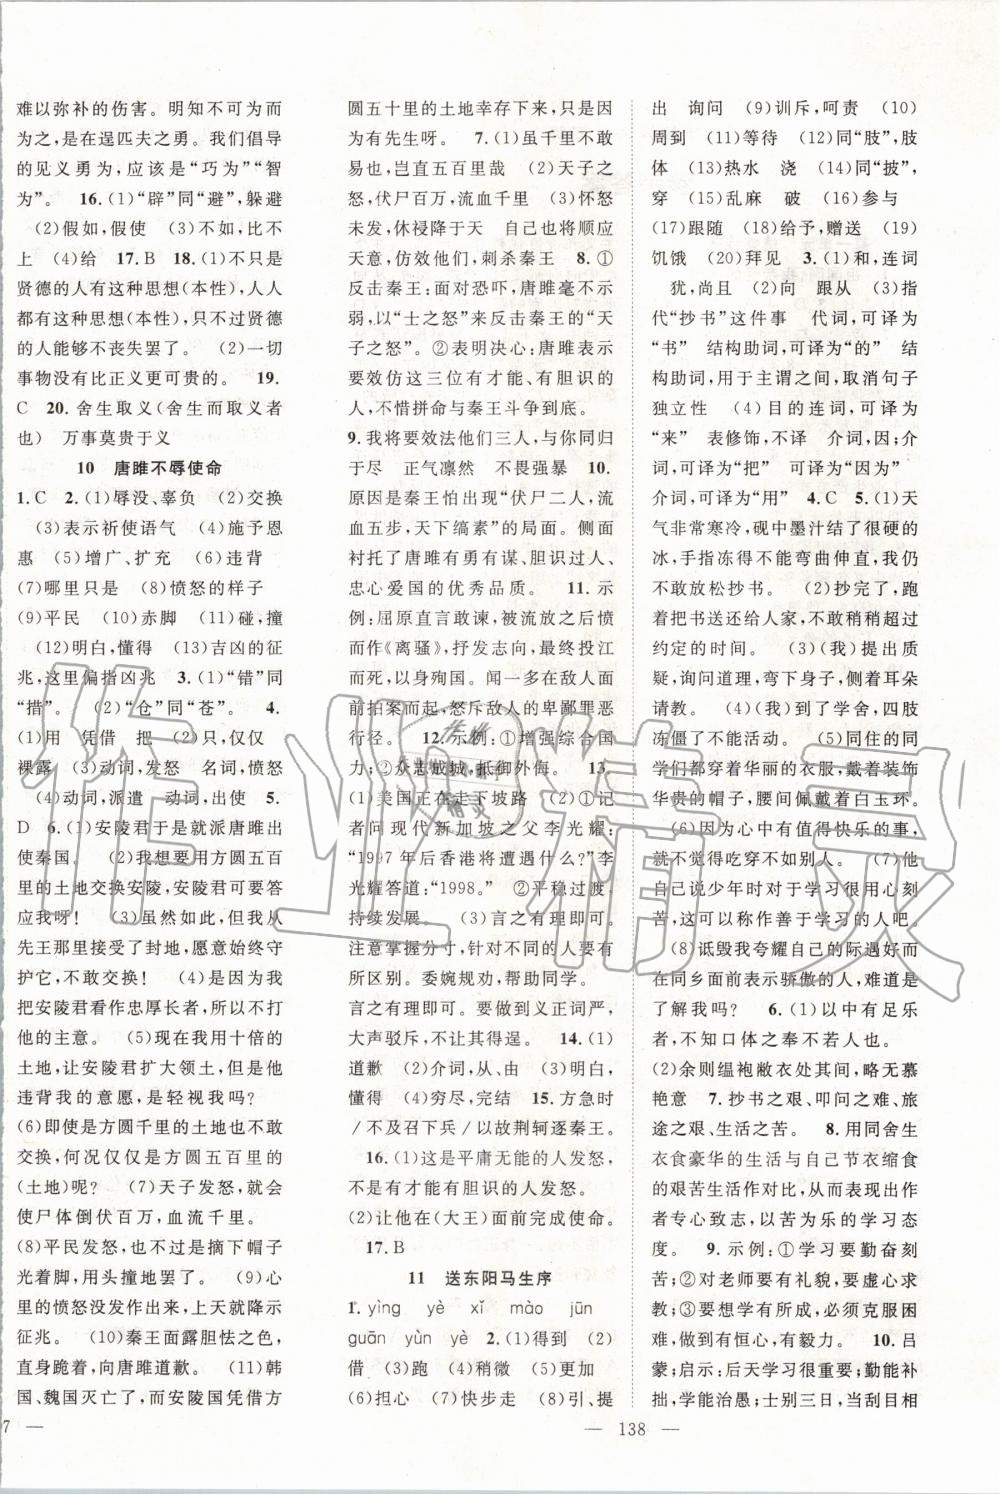 难以弥补的伤害。明知不可为而
为之,是在逞匹夫之勇。我们倡导
的见义勇为,应该是“巧为”“智
为”。 16.(1)“辟”同“避”,躲避
(2)假如,假使 (3)不如,比不
上 (4)给 17.B 18.(1)不只是
贤德的人有这种思想(本性),人人
都有这种思想(本性),只不过贤德
的人能够不丧失罢了。 (2)一切
事物没有比正义更可贵的。 19.
C 20.舍生取义(舍生而取义者
也) 万事莫贵于义
10 唐雎不辱使命
1.C 2.(1)辱没、辜负 (2)交换
(3)表示祈使语气 (4)施予恩
惠 (5)增广、扩充 (6)违背
(7)哪里只是 (8)愤怒的样子
(9)平民 (10)赤脚 (11)碰,撞
(12)明白,懂得 (13)吉凶的征
兆,这里偏指凶兆 3.(1)“错”同
“措”。 (2)“仓”同“苍”。 4.
(1)用 凭借 把 (2)安抚
裸露 (3)动词,发怒 名词,愤怒
(4)动词,派遣 动词,出使 5.
D 6.(1)安陵君于是就派唐雎出
使秦国。 (2)我想要用方圆五百
里的土地交换安陵,安陵君可要答
应我呀! (3)虽然如此,但我从
先王那里接受了封地,愿意始终守
护它,不敢交换! (4)是因为我
把安陵君看作忠厚长者,所以不打
他的主意。 (5)现在我用十倍的
土地,让安陵君扩大领土,但是他
违背我的意愿,是轻视我吗?
(6)即使是方圆千里的土地也不敢
交换,何况仅仅是方圆五百里的
(土地)呢? (7)天子发怒,会
使尸体倒伏百万,血流千里。
(8)平民发怒,也不过是摘下帽子
光着脚,用头撞地罢了。 (9)心
里的愤怒没发作出来,上天就降示
征兆。 (10)秦王面露胆怯之色,
直身跪着,向唐雎道歉。 (11)韩
国、魏国灭亡了,而安陵国凭借方
7 —
圆五十里的土地幸存下来,只是因
为有先生呀。 7.(1)虽千里不敢
易也,岂直五百里哉 (2)天子之
怒,伏尸百万,流血千里 (3)怀怒
未发,休祲降于天 自己也将顺应
天意,仿效他们,刺杀秦王 8.①
反击秦王:面对恐吓,唐雎毫不示
弱,以“士之怒”来反击秦王的“天
子之怒”。②表明决心:唐雎表示
要效仿这三位有才能、有胆识的人,
不惜拼命与秦王斗争到底。
9.我将要效法他们三人,与你同归
于尽 正气凛然 不畏强暴 10.
原因是秦王怕出现“伏尸二人,流
血五步,天下缟素”的局面。侧面
衬托了唐雎有勇有谋、胆识过人、
忠心爱国的优秀品质。 11.示
例:屈原直言敢谏,被流放之后愤
而作《离骚》,抒发志向,最终投江
而死,以身殉国。闻一多在敌人面
前拍案而起,怒斥敌人的卑鄙罪恶
行径。 12.示例:①增强综合国
力;②众志成城,抵御外侮。 13.
(1)美国正在走下坡路 (2)①记
者问现代新加坡之父李光耀:
“1997年后香港将遭遇什么?”李
光耀答道:“1998。” ②平稳过渡,
持续发展。 (3)言之有理即可。
注意掌握分寸,针对不同的人要有
所区别。委婉规劝,帮助同学。
言之有理即可。要做到义正词严,
大声驳斥,不让其得逞。 14.(1)
道歉 (2)介词,因为 (3)明白,
懂得 (4)穷尽,完结 15.方急时
/不及召下兵/以故荆轲逐秦王。
16.(1)这是平庸无能的人发怒,
不是有才能有胆识的人发怒。
(2)让他在(大王)面前完成使命。
17.B
11 送东阳马生序
1.yìng yè xǐ mào jūn
guān yùn yè 2.(1)得到 (2)
借 (3)跑 (4)稍微 (5)全面
(6)担心 (7)快步走 (8)引、提
出 询问 (9)训斥,呵责 (10)
周到 (11)等待 (12)同“肢”,肢
体 (13)热水 浇 (14)同“披”,
穿 (15)乱麻 破 (16)参与
(17)跟随 (18)给予,赠送 (19)
饥饿 (20)拜见 3.(1)和,连词
犹,尚且 (2)向 跟从 (3)指
代“抄书”这件事 代词,可译为
“书” 结构助词,可译为“的” 结
构助词,用于主谓之间,取消句子
独立性 (4)目的连词,可译为
“来” 表修饰,不译 介词,因;
介词,可译为“把” 可译为“因为”
介词,可译为“用” 4.C 5.(1)天
气非常寒冷,砚中墨汁结了很硬的
冰,手指冻得不能弯曲伸直,我仍
不敢放松抄书。 (2)抄完了,跑
着把书送还给人家,不敢稍稍超过
约定的期限。 (3)(我)提出质
疑,询问道理,弯下身子,侧着耳朵
请教。 (4)(我)到了学舍,四肢
冻僵了不能活动。 (5)同住的同
学们都穿着华丽的衣服,戴着装饰
华贵的帽子,腰间佩戴着白玉环。
(6)因为心中有值得快乐的事,
就不觉得吃穿不如别人。 (7)他
自己说少年时对于学习很用心刻
苦,这可以称作善于学习的人吧。
(8)诋毁我夸耀自己的际遇好而
在同乡面前表示骄傲的人,难道是
了解我吗? 6.(1)以中有足乐
者,不知口体之奉不若人也。
(2)余则缊袍敝衣处其间,略无慕
艳意 7.抄书之艰、叩问之难、旅
途之艰、生活之苦。 8.用同舍生
衣食豪华的生活与自己节衣缩食
的艰苦生活作对比,从而表现出作
者专心致志、以苦为乐的学习态
度。 9.示例:①学习要勤奋刻
苦;②对老师要有礼貌,要虚心求
教;③要想学有所成,必须克服困
难,做到有恒心,有毅力。 10.吕
蒙;启示:后天学习很重要;勤能补
拙,学能治愚;士别三日,当刮目相
— 138 —
作业精灵
作业
精灵